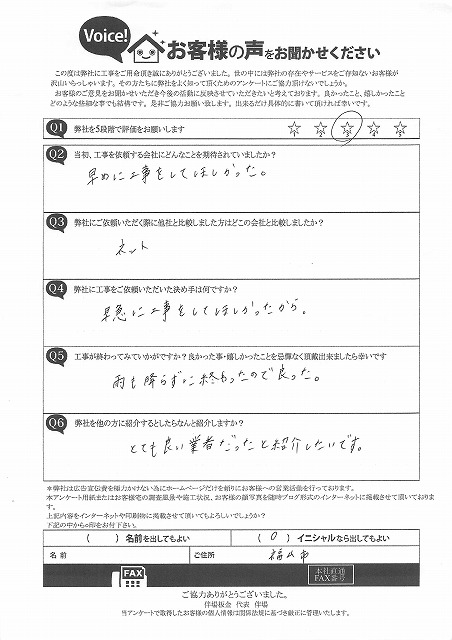 Voice!
お客様の声をお聞かせください
この度は弊社に工事をご用命頂き誠にありがとうございました。世の中には弊社の存在やサービスをご存知ないお客様が
沢山いらっしゃいます。その方たちに弊社をよく知って頂くためのアンケートにご協力頂けないでしょうか。
お客様のご意見をお聞かせいただき今後の活動に反映させていただきたいと考えております。良かったこと、嬉しかったこと
どのような些細な事でも結構です。是非ご協力お願い致します。出来るだけ具体的に書いて頂ければ幸いです。
Q1 弊社を5段階で評価をお願いします ☆ ☆ ☆ ☆ ☆
Q2 当初、工事を依頼する会社にどんなことを期待されていましたか?
早めに工事をしてほしかった。
Q3 弊社にご依頼いただく際に他社と比較しました方はどこの会社と比較しましたか?
ネット
Q4 弊社に工事をご依頼いただいた決め手は何ですか?
早急に工事をしてほしかったから。
Q5 工事が終わってみていかがですか?良かった事・嬉しかったことを忌憚なく頂戴出来ましたら幸いです
雨も降らずに終わったので良った。
Q6 弊社を他の方に紹介するとしたらなんと紹介しますか?
とても良い業者だったと紹介したいです。
※弊社は広告宣伝費を極力かけない為にホームページだけを頼りにお客様への営業活動を行っております。
本アンケート用紙またはお客様宅の調査風景や施工状況、お客様の顔写真を随時ブログ形式のインターネットに掲載させて頂いておりま
す。
上記内容をインターネットや印刷物に掲載させて頂いてもよろしいでしょうか?
下記の中から○印をお付け下さい。
( ) 名前を出してもよい ( O ) イニシャルなら出してもよい
名 前 ご住所 福山市
FAX 本社直通 FAX番号
ご協力ありがとうございました。
伴場板金 代表 伴場
当アンケートで取得したお客様の個人情報は関係法規に基づき厳正に管理いたします。